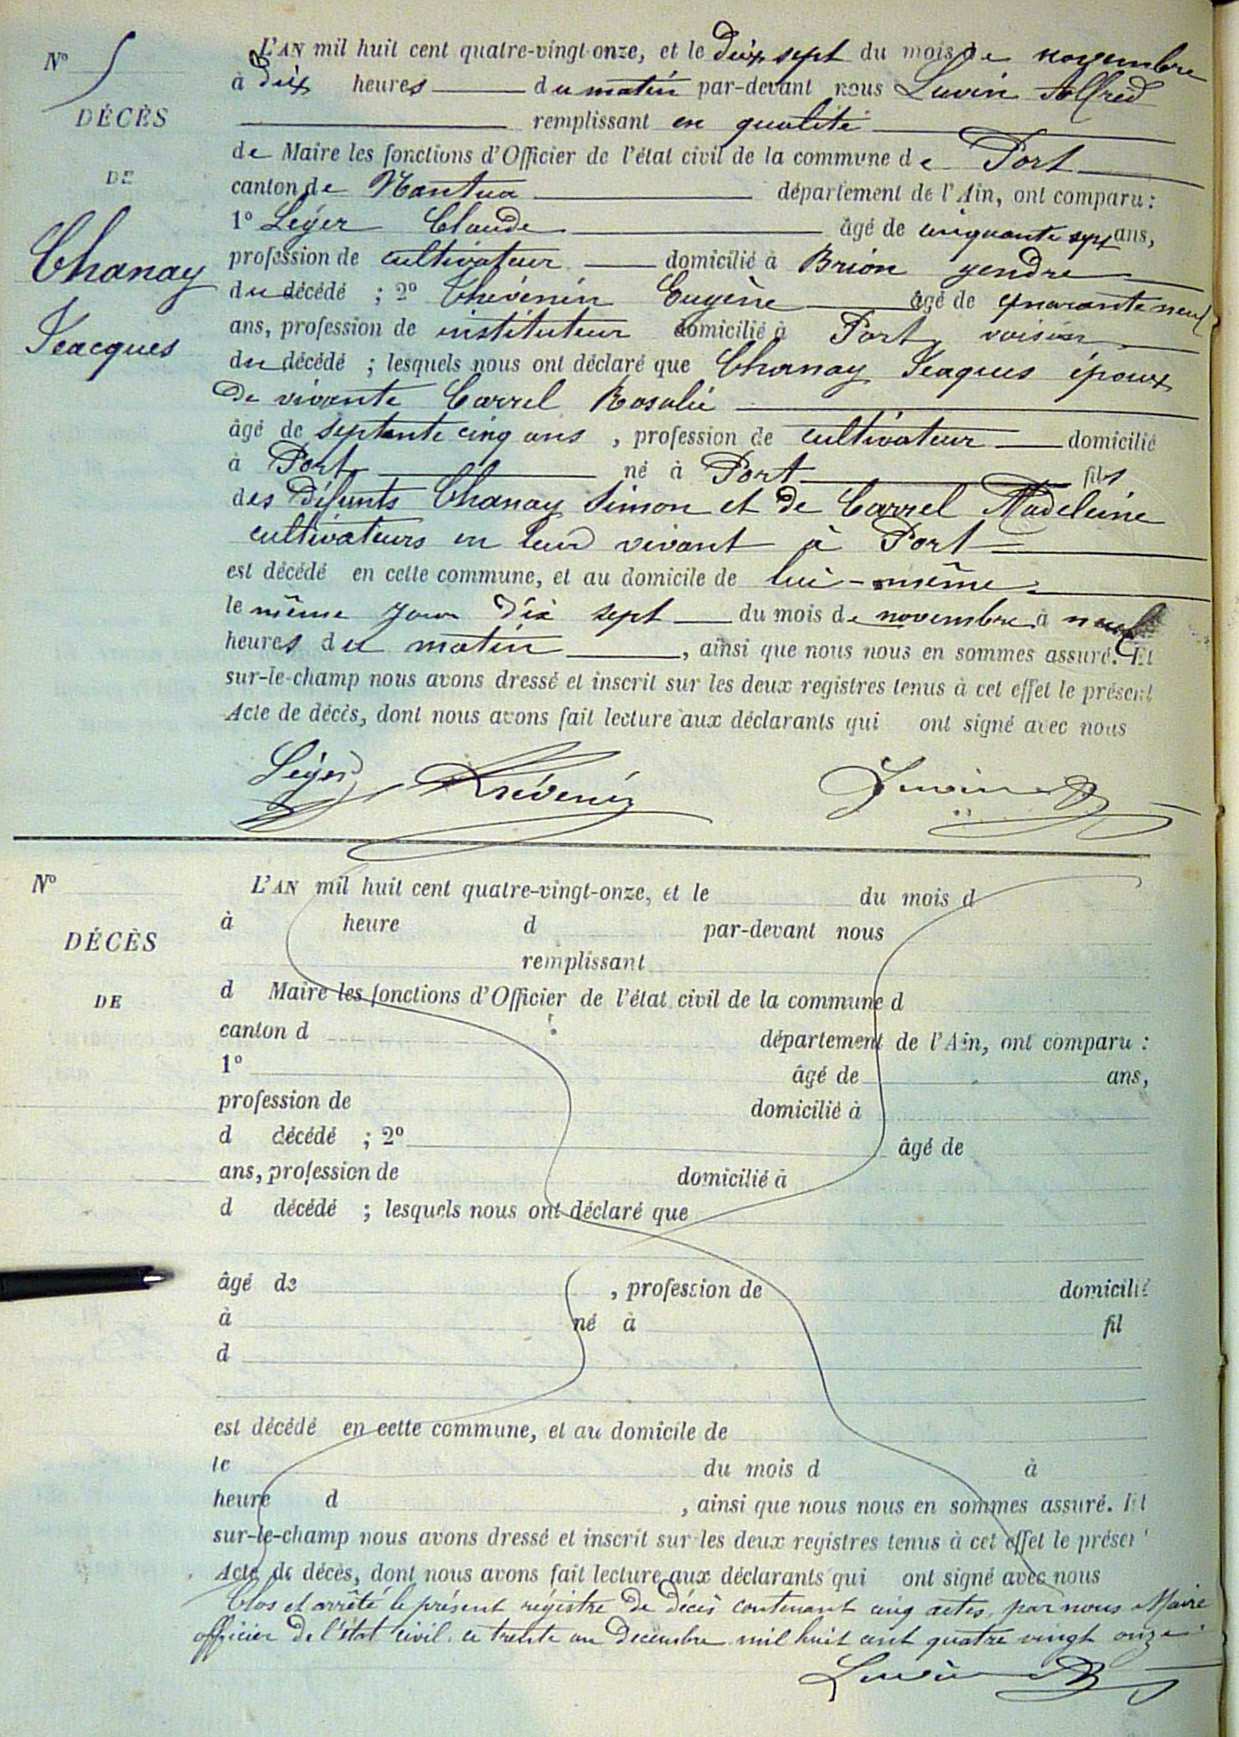 N° 5
DÉCÈS
DE
Chanay
Jeacques
L'AN mil huit cent quatre-vingt-onze, et le dix sept du mois de novembre
à dix heures du matin par-devant nous Luvin Alfred
remplissant en qualité
de Maire les fonctions d'Officier de l'état civil de la commune de Port
canton de Nantua département de l'Ain, ont comparu :
1° Léger Claude âgé de cinquante sept ans,
profession de cultivateur domicilié à Brion gendre
du décédé ; 2° Thévenin Eugène âgé de quarante neuf
ans, profession de instituteur domicilié à Port voisin
du décédé ; lesquels nous ont déclaré que Chanay Jeaques époux
de vivante Carrel Rosalie
âgé de septente cinq ans , profession de cultivateur domicilié
à Port né à Port fils
des défunts Chanay Simon et de Carrel Madeleine
cultivateurs en leur vivant à Port
est décédé en cette commune, et au domicile de lui-même
le même jour dix sept du mois de novembre à neuf
heures du matin , ainsi que nous nous en sommes assuré. Et
sur-le-champ nous avons dressé et inscrit sur les deux registres tenus à cet effet le présent
Acte de décès, dont nous avons fait lecture aux déclarants qui ont signé avec nous
Léger Thévenin Luvin A
N°
DÉCÈS
DE
L'AN mil huit cent quatre-vingt-onze, et le du mois d
à heure d par-devant nous
remplissant
d Maire les fonctions d'Officier de l'état civil de la commune d
canton d département de l'Ain, ont comparu :
1° âgé de ans,
profession de domicilié à
d décédé ; 2° âgé de
ans, profession de domicilié à
d décédé ; lesquels nous ont déclaré que
âgé de , profession de domicilié
à né à fil
d
est décédé en cette commune, et au domicile de
le du mois d à
heure d , ainsi que nous nous en sommes assuré. Et
sur-le-champ nous avons dressé et inscrit sur les deux registres tenus à cet effet le présent
Acte de décès, dont nous avons fait lecture aux déclarants qui ont signé avec nous
Clos et arrêté le présent régistre de décès contenant cinq actes, par nous Maire
officier de l'état civil ce trente un Decembre mil huit cent quatre vingt onze.
Luvin A